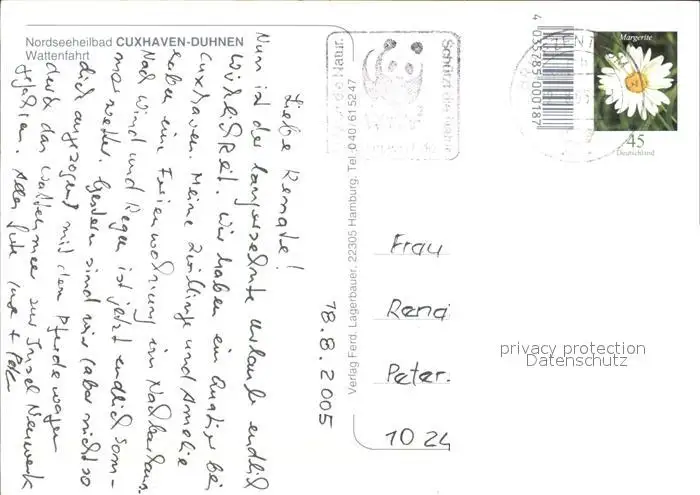 Nordseeheilbad CUXHAVEN-DUHNEN
Wattenfahrt
Liebe Renate!
Nun ist der langersehnte Urlaub endlich
Wirklichkeit. Wir haben ein Quatier bei
Cuxhaven. Meine Zwillinge und Amelie
haben eine Ferienwohnung im Nachbarhaus.
Nach Wind und Regen ist jetzt endlich Som-
merwetter. Gestern sind wir (aber nicht so
dick angezogen) mit dem Pferdewagen
durch das Wattenmeer zur Insel Neuwerk
gefahren. Alles Gute
18.8.2005
Verlag Ferd. Lagerbauer, 22305 Hamburg, Tel. 040/615247
der Natur.
Schützt
4 035785 000187
Margerite
45
Deutschland
Frau
Rena
Peter
10 24
privacy protection
Datenschutz